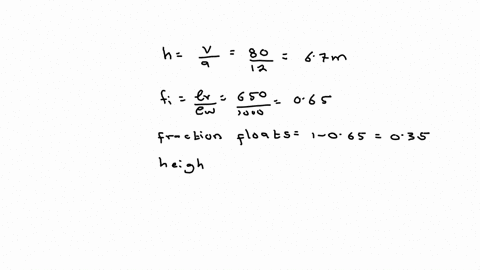 h = v/a = 80/12 = 6.7m
fi = ℓr/ℓw = 650/1000 = 0.65
fraction floats = 1-0.65 = 0.35
heigh